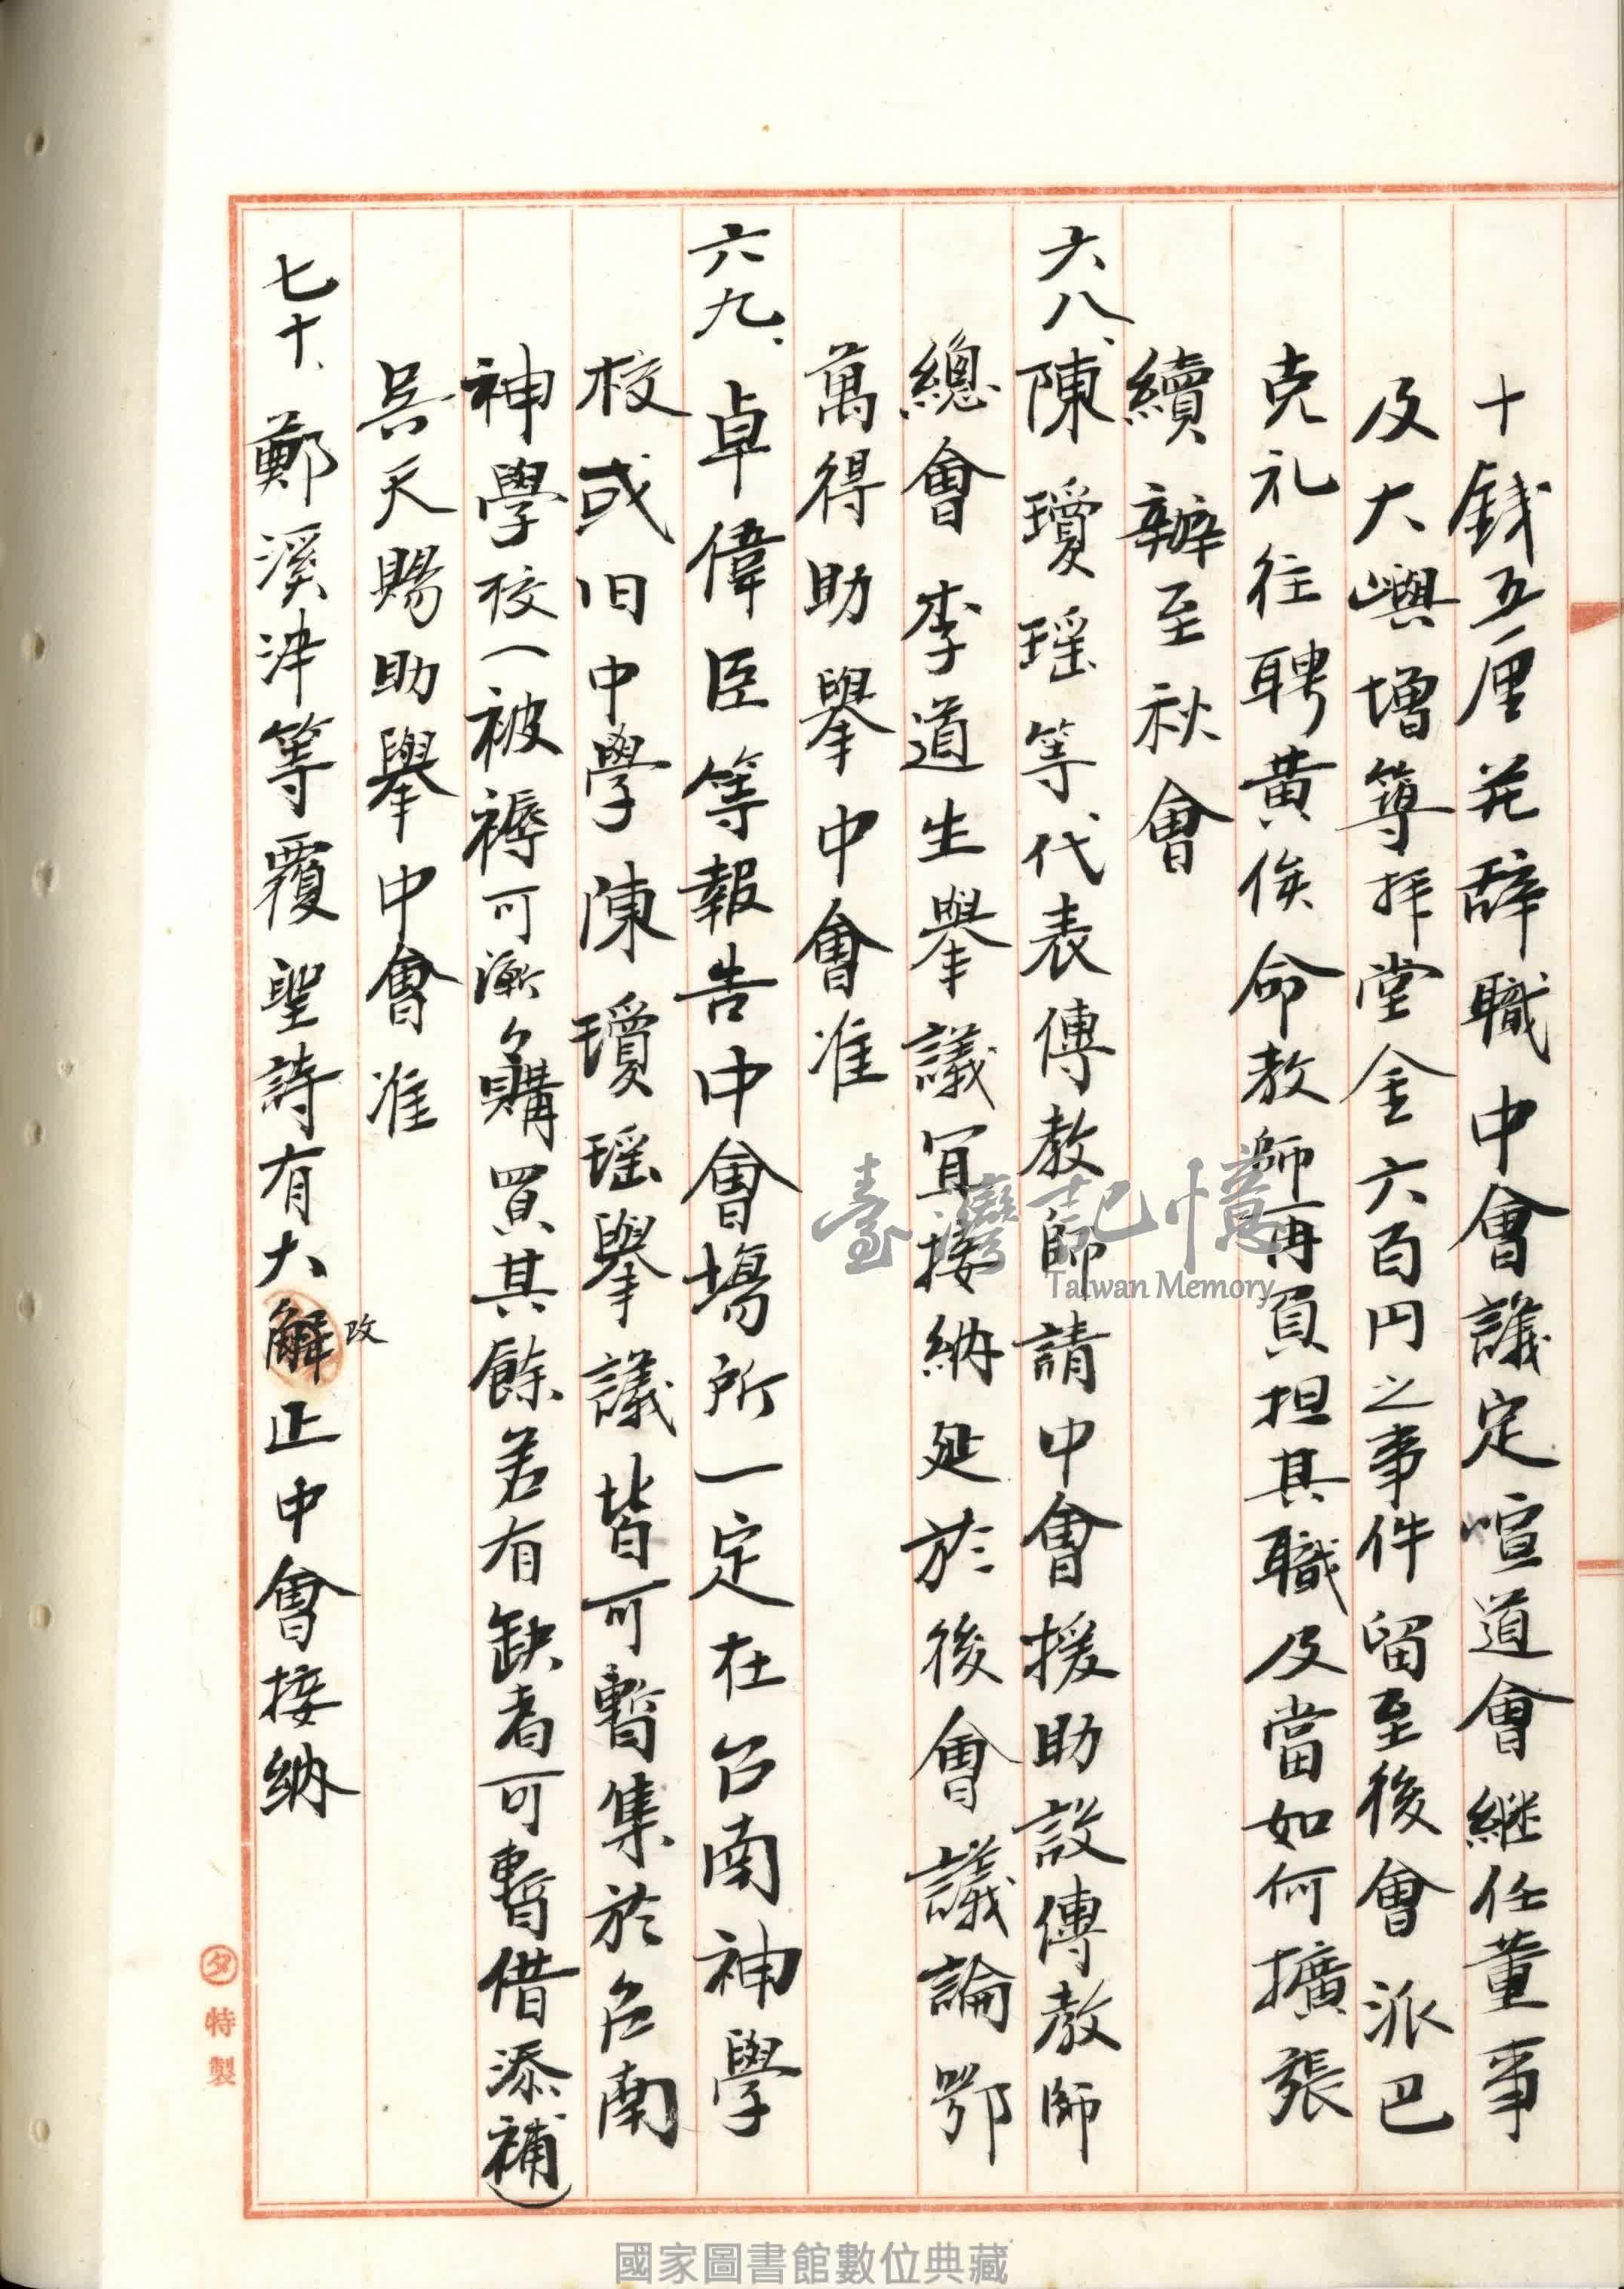 十錢五厘並辞職中會議定喧道會継任董事
及大嶼增築拝堂金六百円之事件留至後會派巴
克礼往聘黃俟命教師再負担其職及當如何擴張
續辦至秋會
六八、陳瓊瑶等代表傳教師請中會援助設傳教師
總會李道生舉議宜接納延於後會議論鄂
萬得助舉中會准
六九、卓偉臣等報告中會塲所一定在台南神學
校或旧中學陳瓊瑶舉議皆可暫集於台南
神學校(被褥可漸々購買其餘若有缺者可暫借添補)
吳天賜助舉中會准
七十、鄭溪泮等覆聖詩有大解改正中會接納
タ特製
臺灣記憶
Taiwan Memory
國家圖書館數位典藏